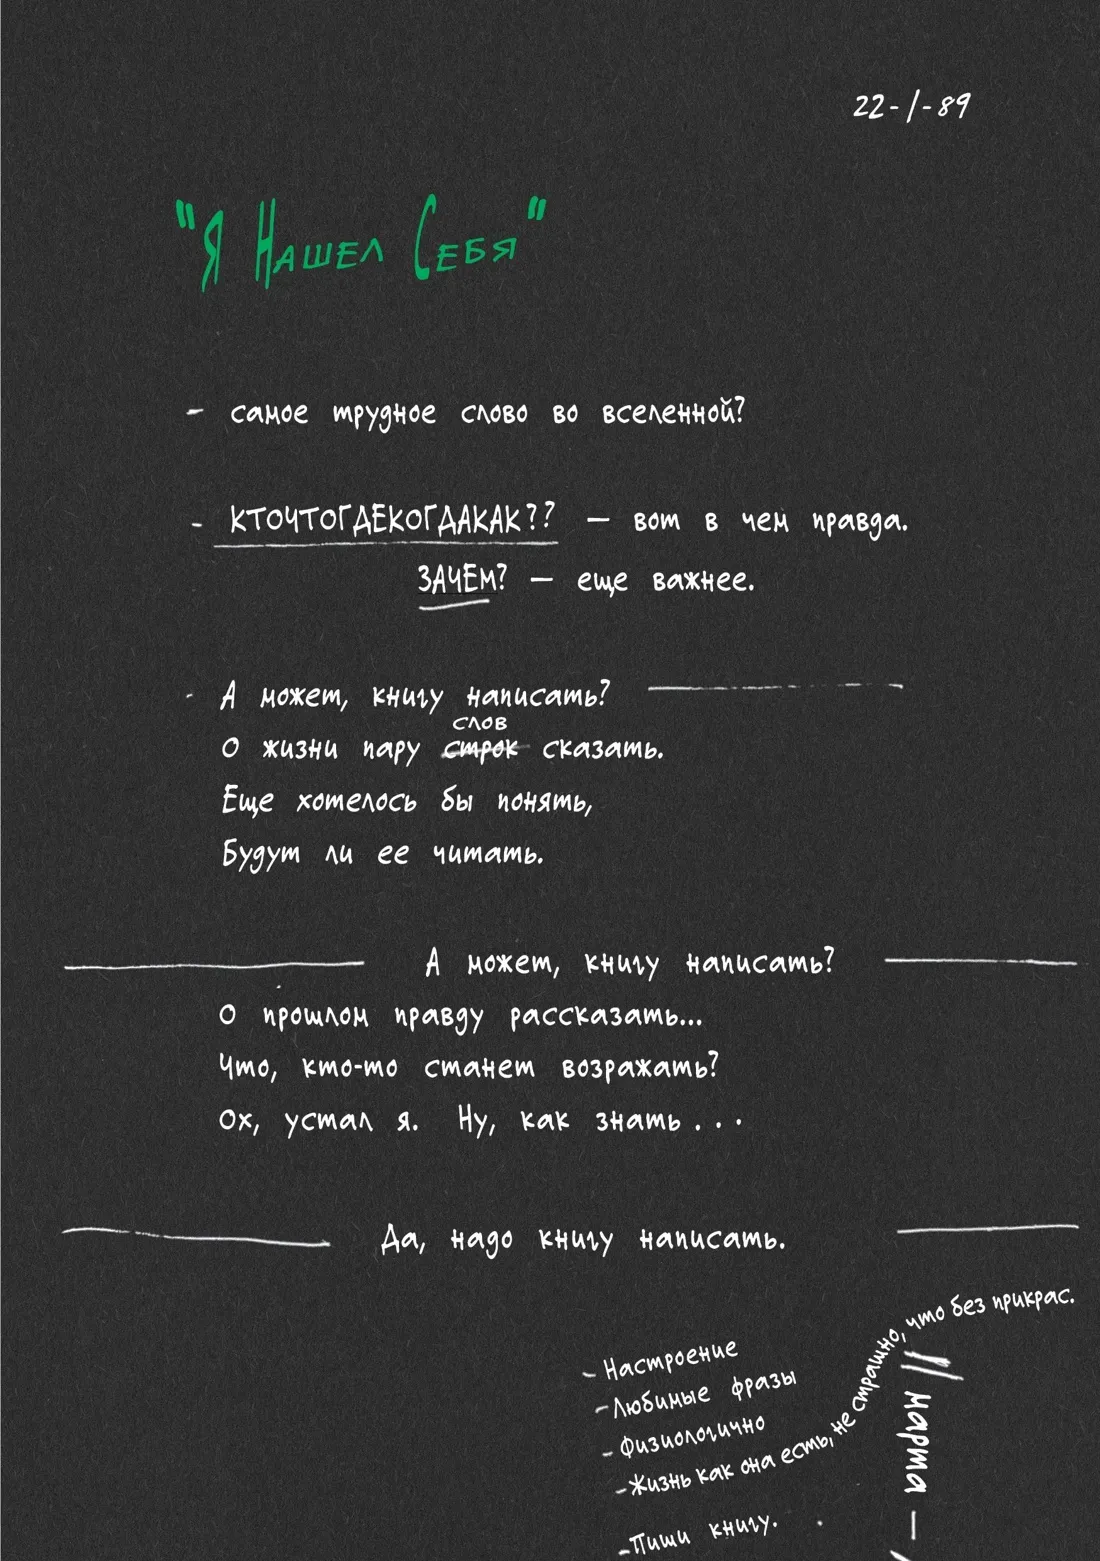 22-1-89
"Я Нашел Себя"
- самое трудное слово во вселенной?
- КТОЧТОГДЕКОГДАКАК?? — вот в чем правда.
ЗАЧЕМ? — еще важнее.
- А может, книгу написать?
слов
О жизни пару строк сказать.
Еще хотелось бы понять,
Будут ли ее читать.
А может, книгу написать?
О прошлом правду рассказать...
Что, кто-то станет возражать?
Ох, устал я. Ну, как знать...
Да, надо книгу написать.
- Настроение
- Любимые фразы
- Физиологично
- Жизнь как она есть, не страшно, что без прикрас.
- Пиши книгу.
марта —